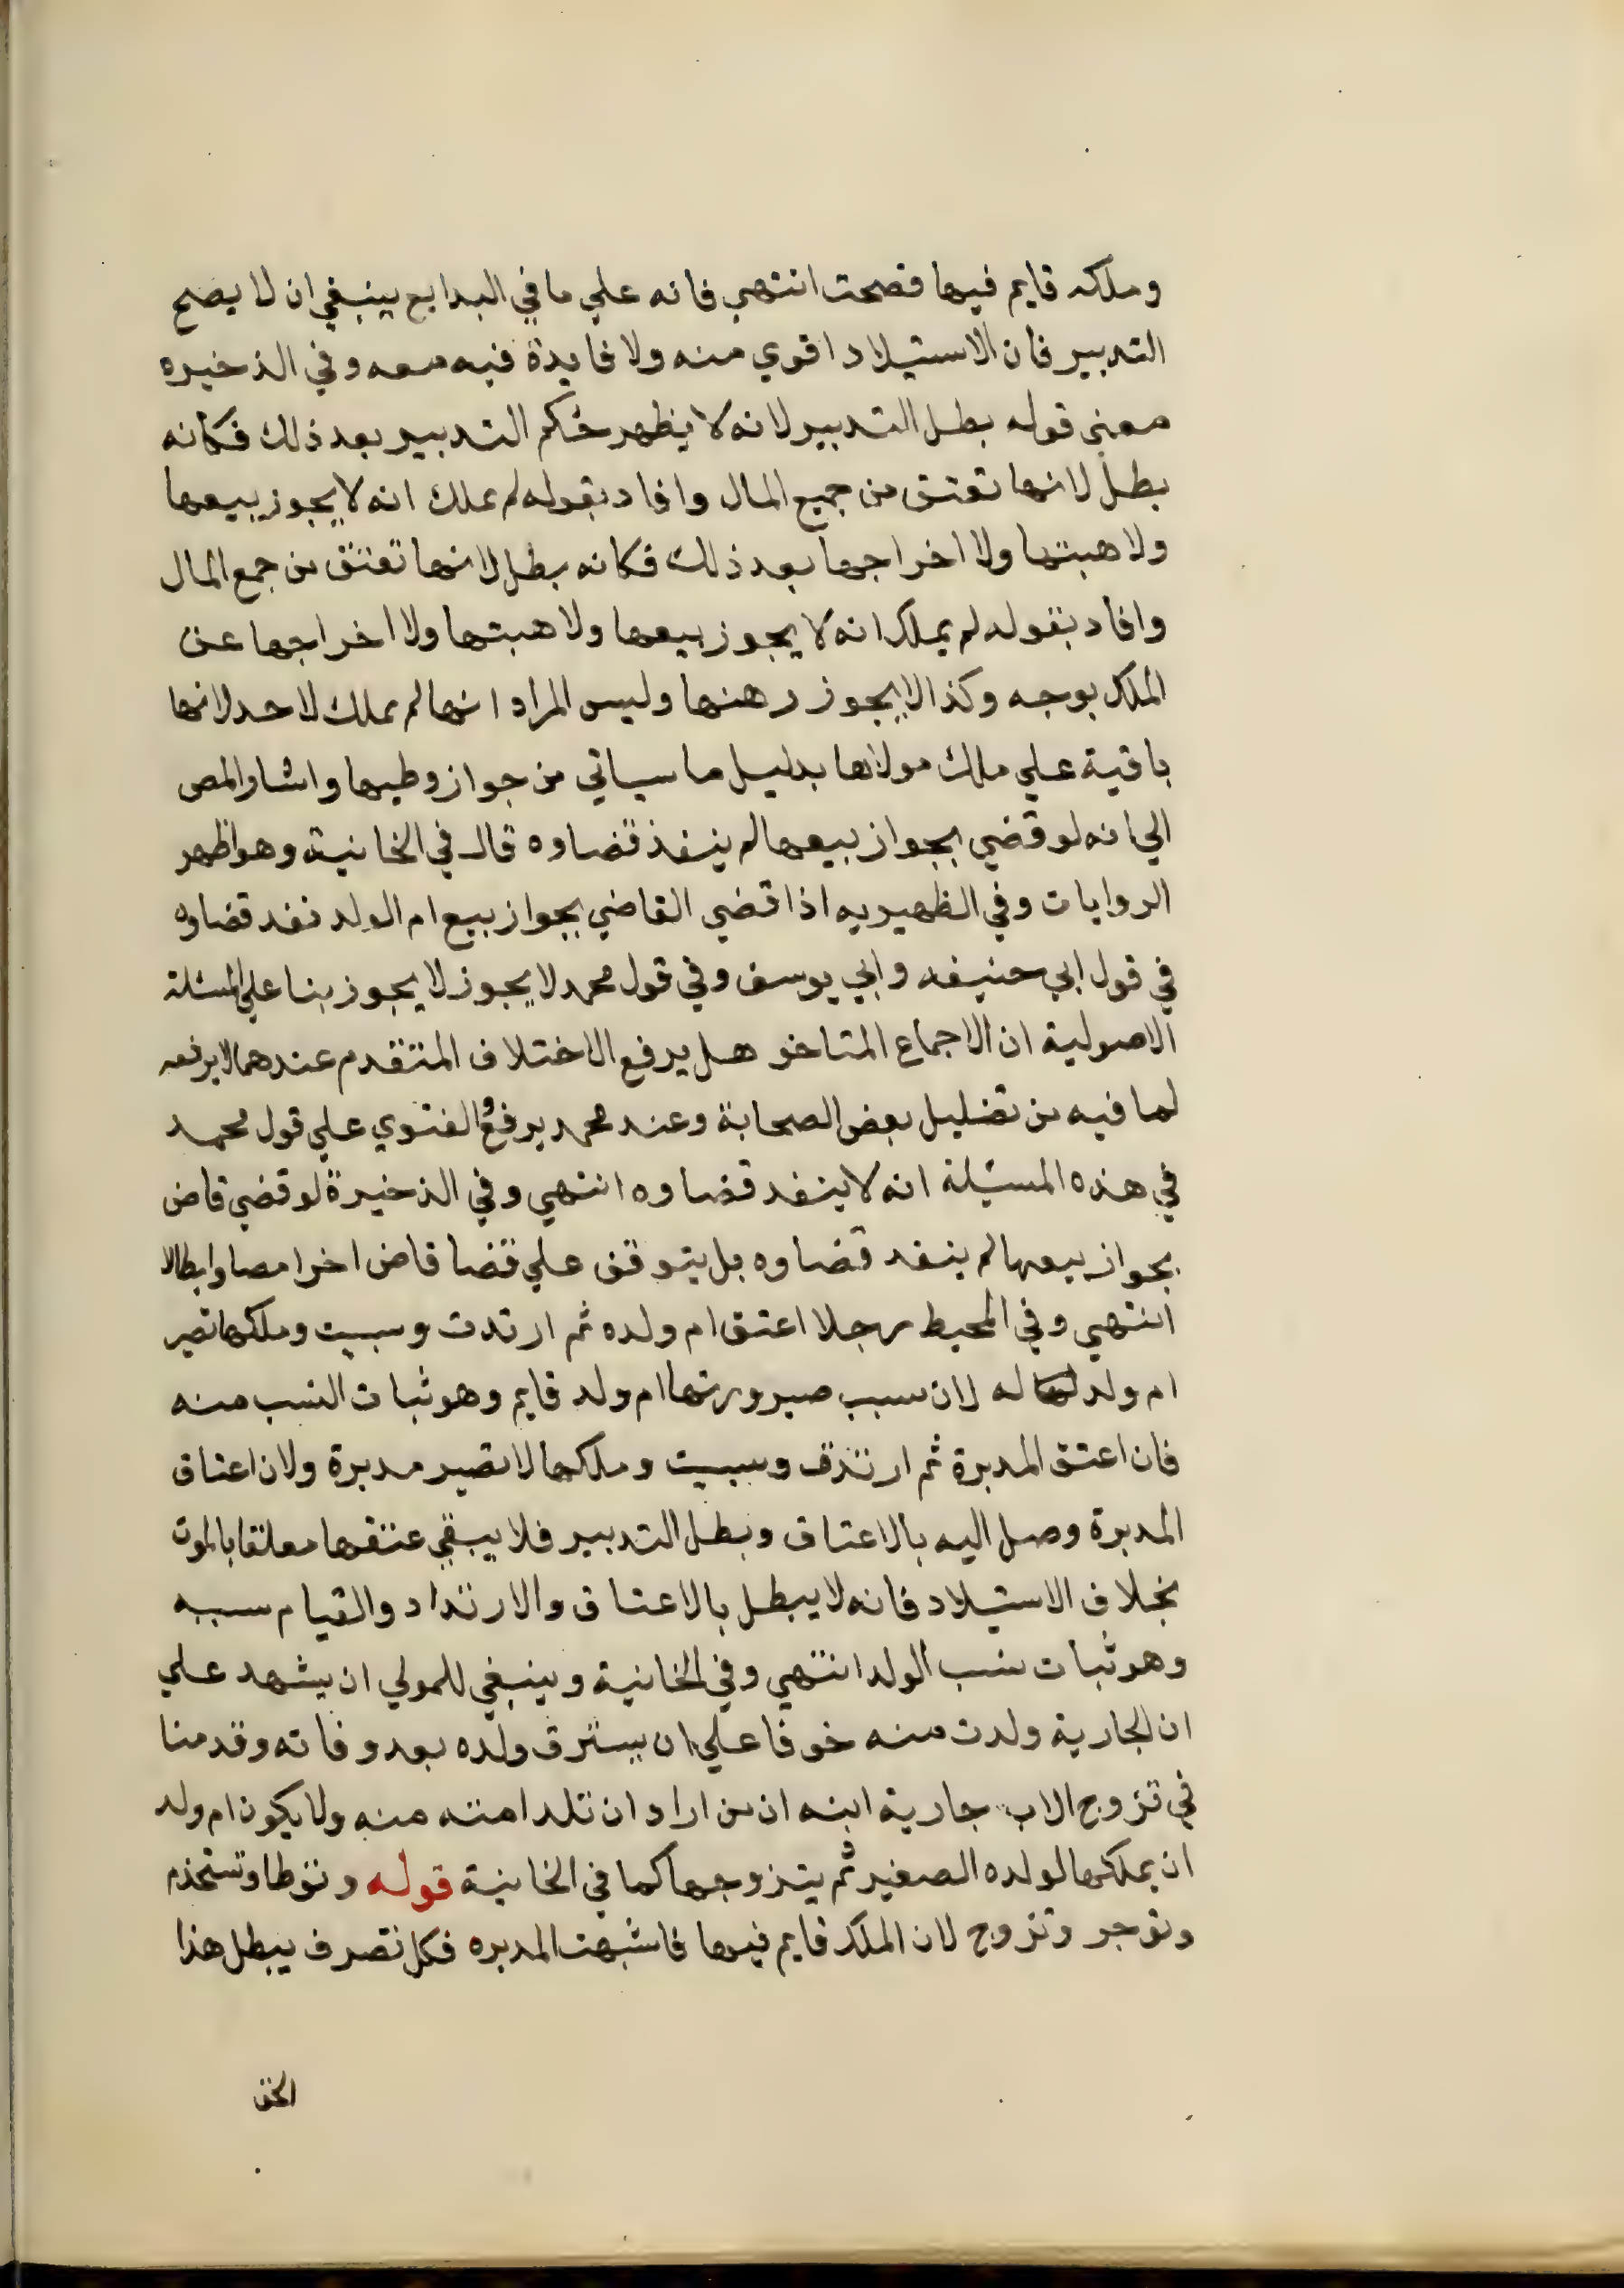 وملكه قايم فيها فصحت انتهي فانه علي ما في البدايع ينبغي ان لا يصح
التدبير فان الاستيلاد اقوي منه ولا فايدة فيه معه وفي الذخيره
معني قوله بطل التدبير لانه لا يظهر حكم التدبير بعد ذلك فكانه
بطل لانها تعتق من جميع المال وافاد بقوله لم تملك انه لا يجوز بيعها
ولا هبتها ولا اخراجها بعد ذلك فكانه بطل لانها تعتق من جمع المال
وافاد بقوله لم يملك انه لا يجوز بيعها ولا هبتها ولا اخراجها عن
الملك بوجه وكذا لا يجوز رهنها وليس المراد انها لم تملك لاحد لانها
باقية علي ملك مولاها بدليل ما سياتي من جواز وطيها واشار المص
الي انه لو قضي بجواز بيعها لم ينفذ قضاوه قال في الخانية وهو اظهر
الروايات وفي الظهيريه اذا قضي القاضي بجواز بيع ام الولد نفد قضاوه
في قول ابي حنيفه وابي يوسف وفي قول محمد لا يجوز لا يجوز بنا علي المسئلة
الاصولية ان الاجماع المتاخر هل يرفع الاختلاف المتقدم عندهما لا يرفعه
لما فيه من تضليل بعض الصحابة وعند محمد يرفع والفتوي علي قول محمد
في هذه المسئلة انه لا ينفد قضاوه انتهي وفي الذخيرة لو قضي قاض
بجواز بيعها لم ينفد قضاوه بل يتوقف علي قضا قاض اخر امضا وابطالا
انتهي وفي المحيط رجلا اعتق ام ولده ثم ارتدت وسبيت وملكها تصير
ام ولد له لان سبب صيرورتها ام ولد قايم وهو ثبات النسب منه
فان اعتق المدبرة ثم ارتدت وسبيت وملكها لا تصير مدبرة ولان اعتاق
المدبرة وصل اليه بالاعتاق وبطل التدبير فلا يبقي عتقها معلقا بالموت
بخلاف الاستيلاد فانه لا يبطل بالاعتاق والارتداد والقيام سببه
وهو ثبات نسب الولد انتهي وفي الخانية وينبغي للمولي ان يشهد علي
ان الجارية ولدت منه خوفا علي ان يسترق ولده بعد وفاته وقدمنا
في تزوج الاب جارية ابنه ان من اراد ان تلد امته منه ولا يكون ام ولد
ان يملكها لولده الصغير ثم يتزوجها كما في الخانية قوله وتوطا وتستخدم
وتوجر وتزوج لان الملك قايم فيها فاشبهت المدبره فكل تصرف يبطل هذا
الحق